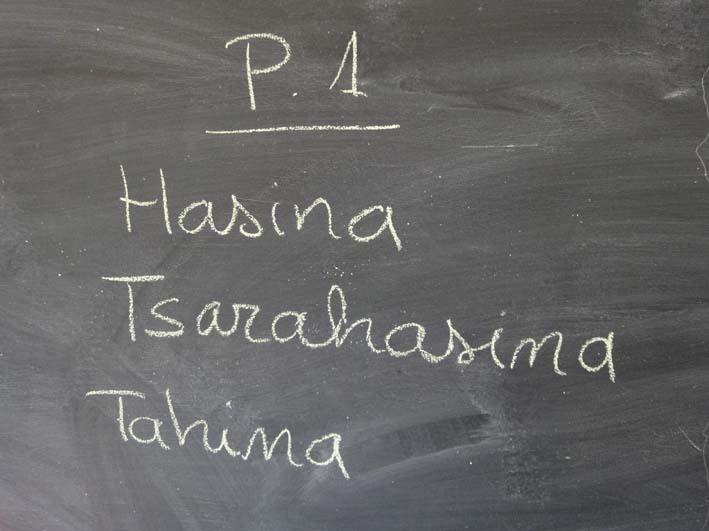 P.1
Hasina
Tsarahasina
Tahina